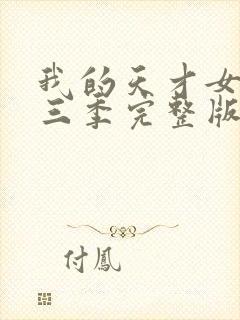 我的天才女
三季完整版
付鳳